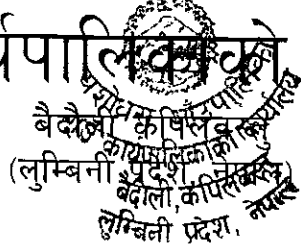 र्यपालिकाको
बैदौली कपिलवस्तु
(लुम्बिनी प्रदेश, नेपाल)
कार्यपालिकाको कार्यालय
बैदौली, कपिलवस्तु
लुम्बिनी प्रदेश, नेपाल